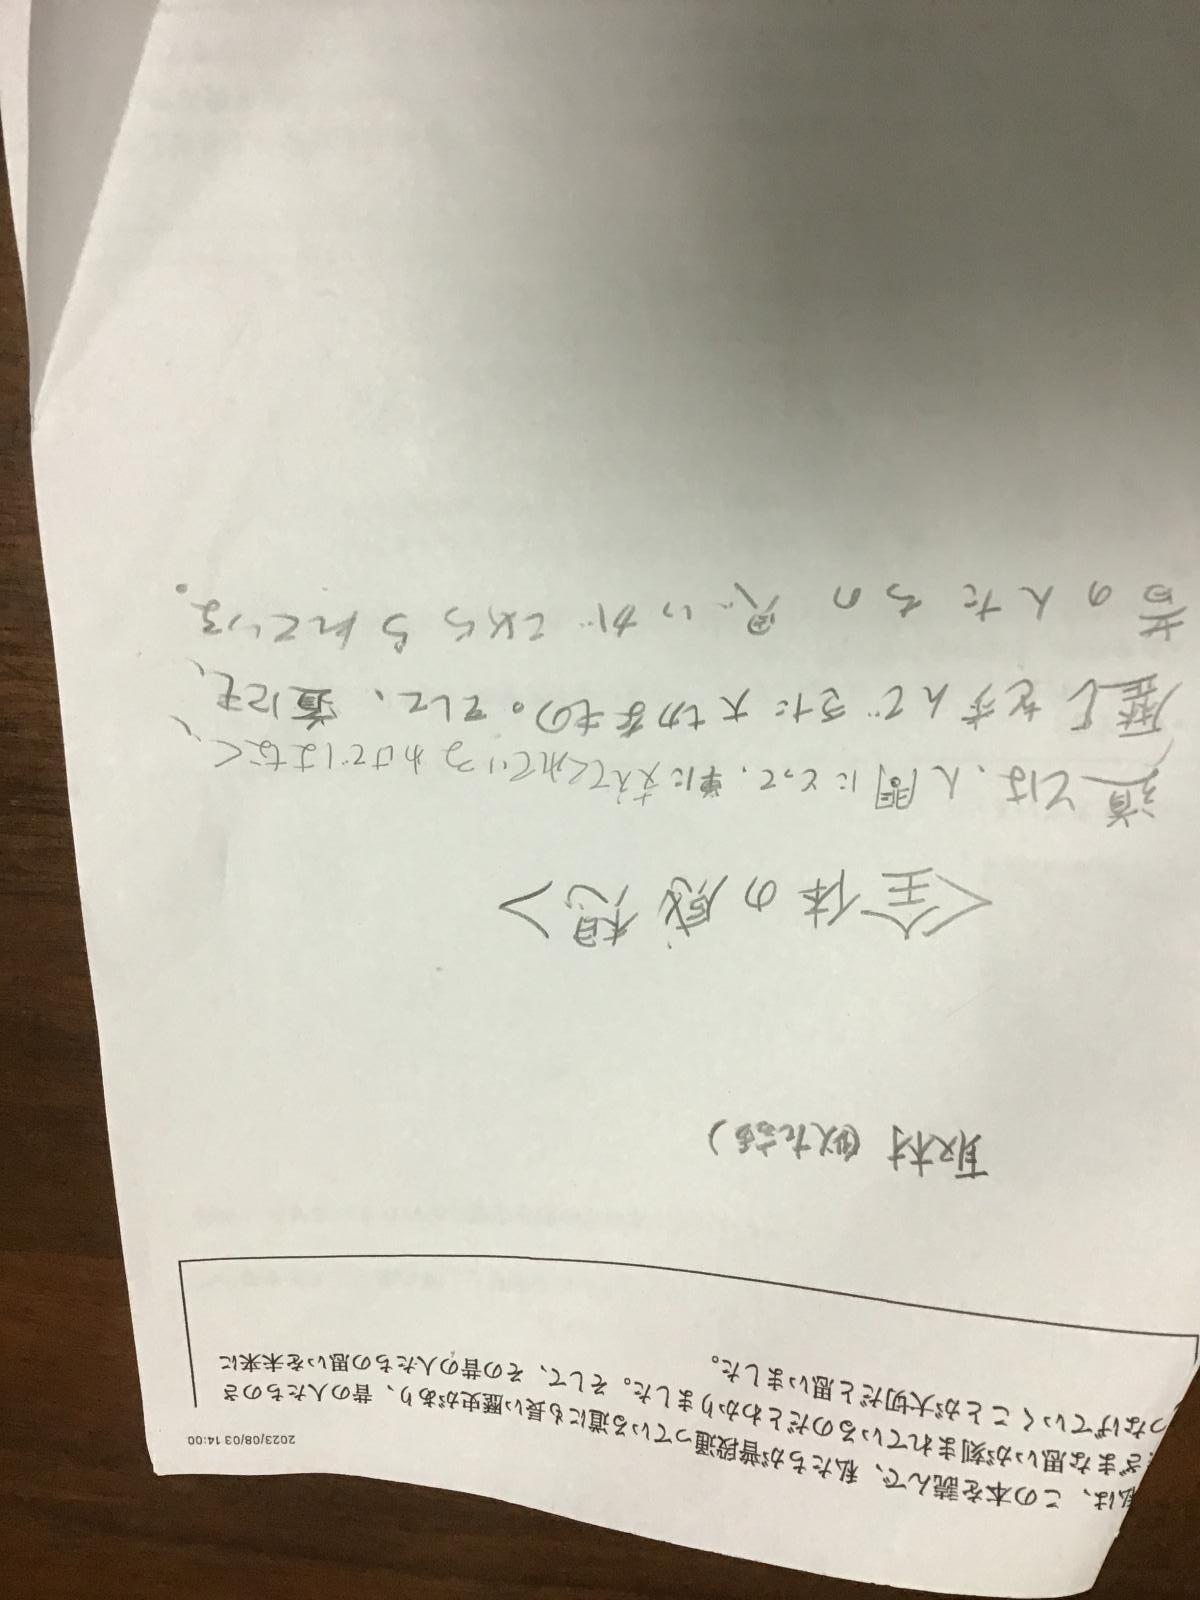 2023/08/03 14:00
私は、この本を読んで、私たちが普段通っている道にも長い歴史があり、昔の人たちのさ
まざまな思いが刻まれているのだとわかりました。そして、その昔の人たちの思いを未来に
つなげていくことが大切だと思いました。
取材(似た話)
<全体の感想>
道とは、人間にとって、単に支えてくれているわけではなく、
歴史を歩んできた大切なもの。そして、道にも、
昔の人たちの思いがこめられている。